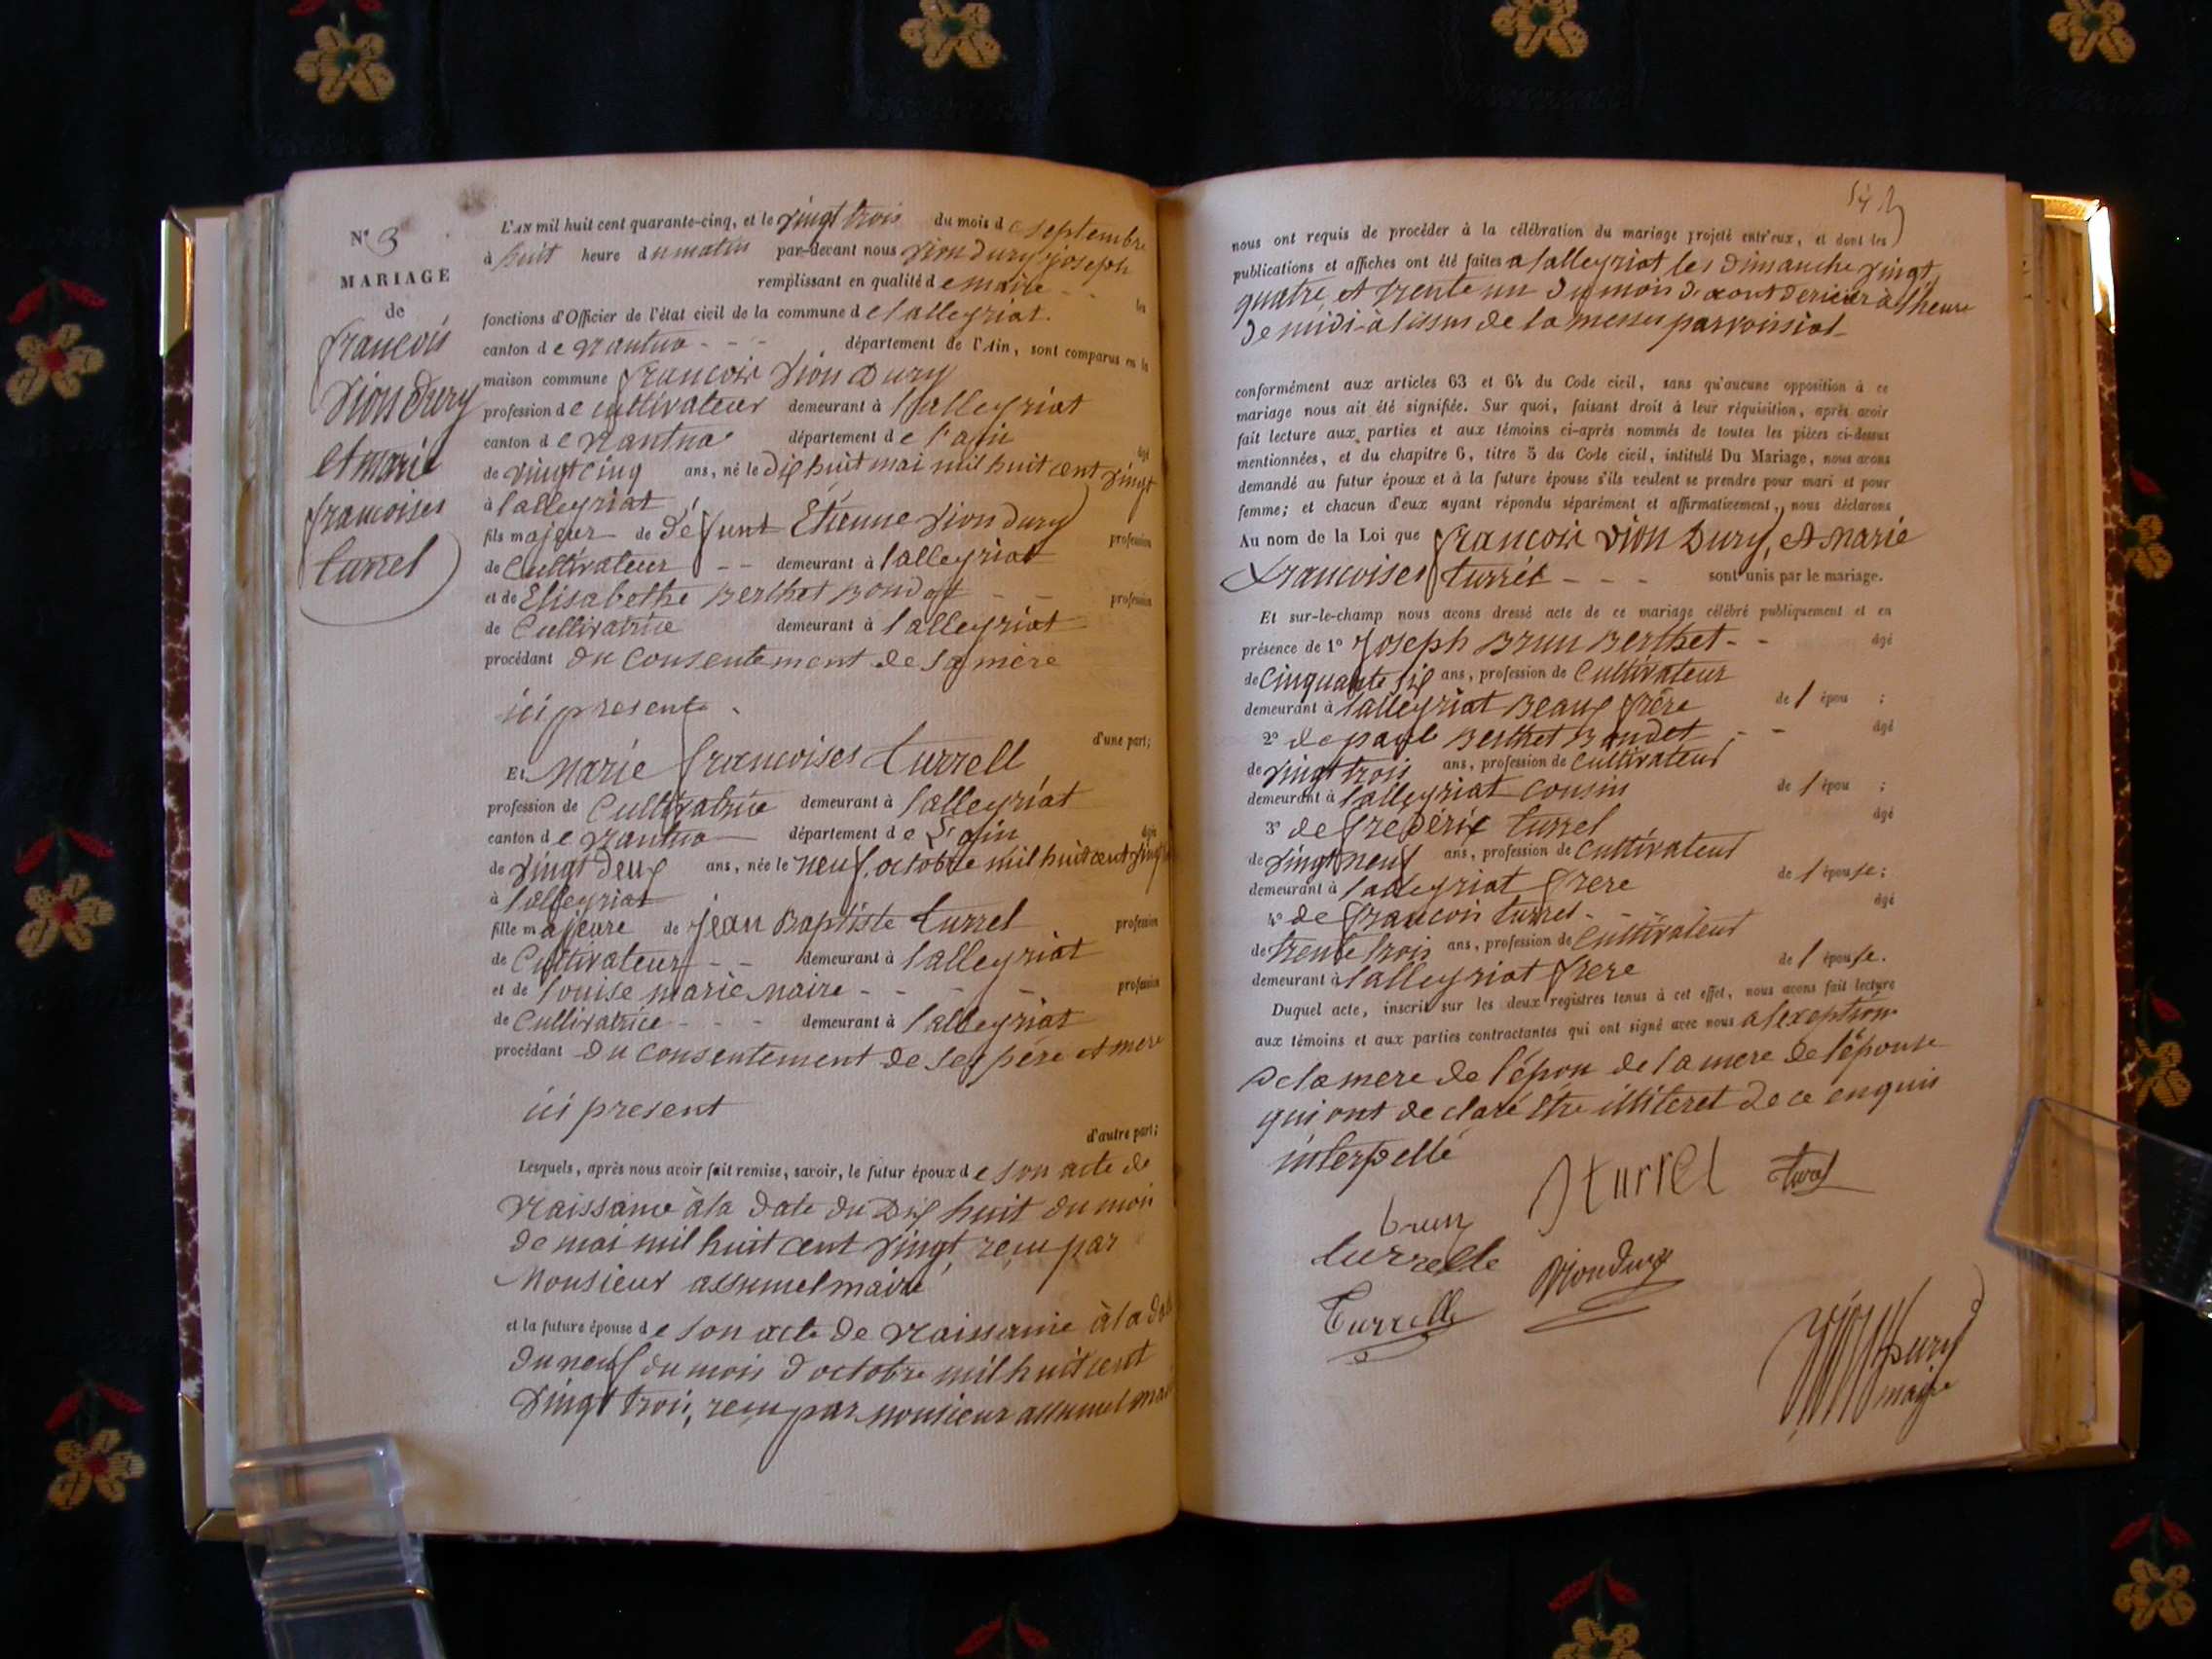 N° 3
MARIAGE
de
françois
Vion Dury
et marie
francoises
turrel
L'AN mil huit cent quarante-cinq, et le vingt trois du mois de septembre
à huit heure du matin par-devant nous vion Dury joseph
remplissant en qualité de maire - - les
fonctions d'Officier de l'état civil de la commune de lalleyriat.
canton de Nantua - - - département de l'Ain, sont comparus en la
maison commune francois Vion Dury
profession de cultivateur demeurant à lalleyriat
canton de Nantua département de l'ain
âgé
de vingt cinq ans, né le dix huit mai mil huit cent vingt
à lalleyriat
fils majeur de défunt Etienne vion Dury profession
de Cultivateur - - demeurant à lalleyriat
et de Elisabethe Berthet Bondet - - profession
de Cultivatrice demeurant à lalleyriat
procédant du consentement de sa mère
ici presente
d'une part;
Et Marie francoises turrell
profession de Cultivatrice demeurant à lalleyriat
canton de Nantua département de L'ain âgée
de vingt deux ans, née le neuf octobre mil huit cent vingt
à lalleyriat
fille majeure de jean Baptiste turrel profession
de Cultivateur - - demeurant à lalleyriat
et de louise marie Maire - - - - profession
de Cultivatrice - - - demeurant à lalleyriat
procédant du consentement de ses père et mere
ici present
d'autre part;
Lesquels, après nous avoir fait remise, savoir, le futur époux de son acte de
Naissance à la date du Dix huit du mois
de mai mil huit cent vingt, reçu par
Monsieur assumel maire
et la future épouse de son acte de Naissance à la date
du neuf du mois d'octobre mil huit cent
vingt trois, reçu par Monsieur assumel maire
nous ont requis de procéder à la célébration du mariage projeté entr'eux, et dont les
publications et affiches ont été faites a lalleyriat les dimanche vingt
quatre et trente un du mois d'aout dernier à l'heure
de midi à lissus de la messes parroissial
conformément aux articles 63 et 64 du Code civil, sans qu'aucune opposition à ce
mariage nous ait été signifiée. Sur quoi, faisant droit à leur réquisition, après avoir
fait lecture aux parties et aux témoins ci-après nommés de toutes les pièces ci-dessus
mentionnées, et du chapitre 6, titre 5 du Code civil, intitulé Du Mariage, nous avons
demandé au futur époux et à la future épouse s'ils veulent se prendre pour mari et pour
femme; et chacun d'eux ayant répondu séparément et affirmativement, nous déclarons
Au nom de la Loi que francois vion Dury, et Marie
Francoises turrel - - - sont unis par le mariage.
Et sur-le-champ nous avons dressé acte de ce mariage célébré publiquement et en
présence de 1° Joseph Brun Berthet - - âgé
de Cinquante six ans, profession de Cultivateur
demeurant à lalleyriat Beaux frère de l épou ;
2° de paul Berthet Bondet - - âgé
de vingt trois ans, profession de cultivateur
demeurant à lalleyriat cousin de l épou ;
3° de frédéric turrel âgé
de vingt neuf ans, profession de cultivateur
demeurant à lalleyriat frere de l épouse;
4° de francois turrel - - - âgé
de trente trois ans, profession de Cultivateur
demeurant à lalleyriat frere de l épouse.
Duquel acte, inscrit sur les deux registres tenus à cet effet, nous avons fait lecture
aux témoins et aux parties contractantes qui ont signé avec nous a lexeption
de la mere de l'épou de la mere de l'épouse
qui ont declaré être illiteret de ce enquis
interpellé
Sturrel
brun
turrelle
Vionduryf
Turrelle
Dury
maire